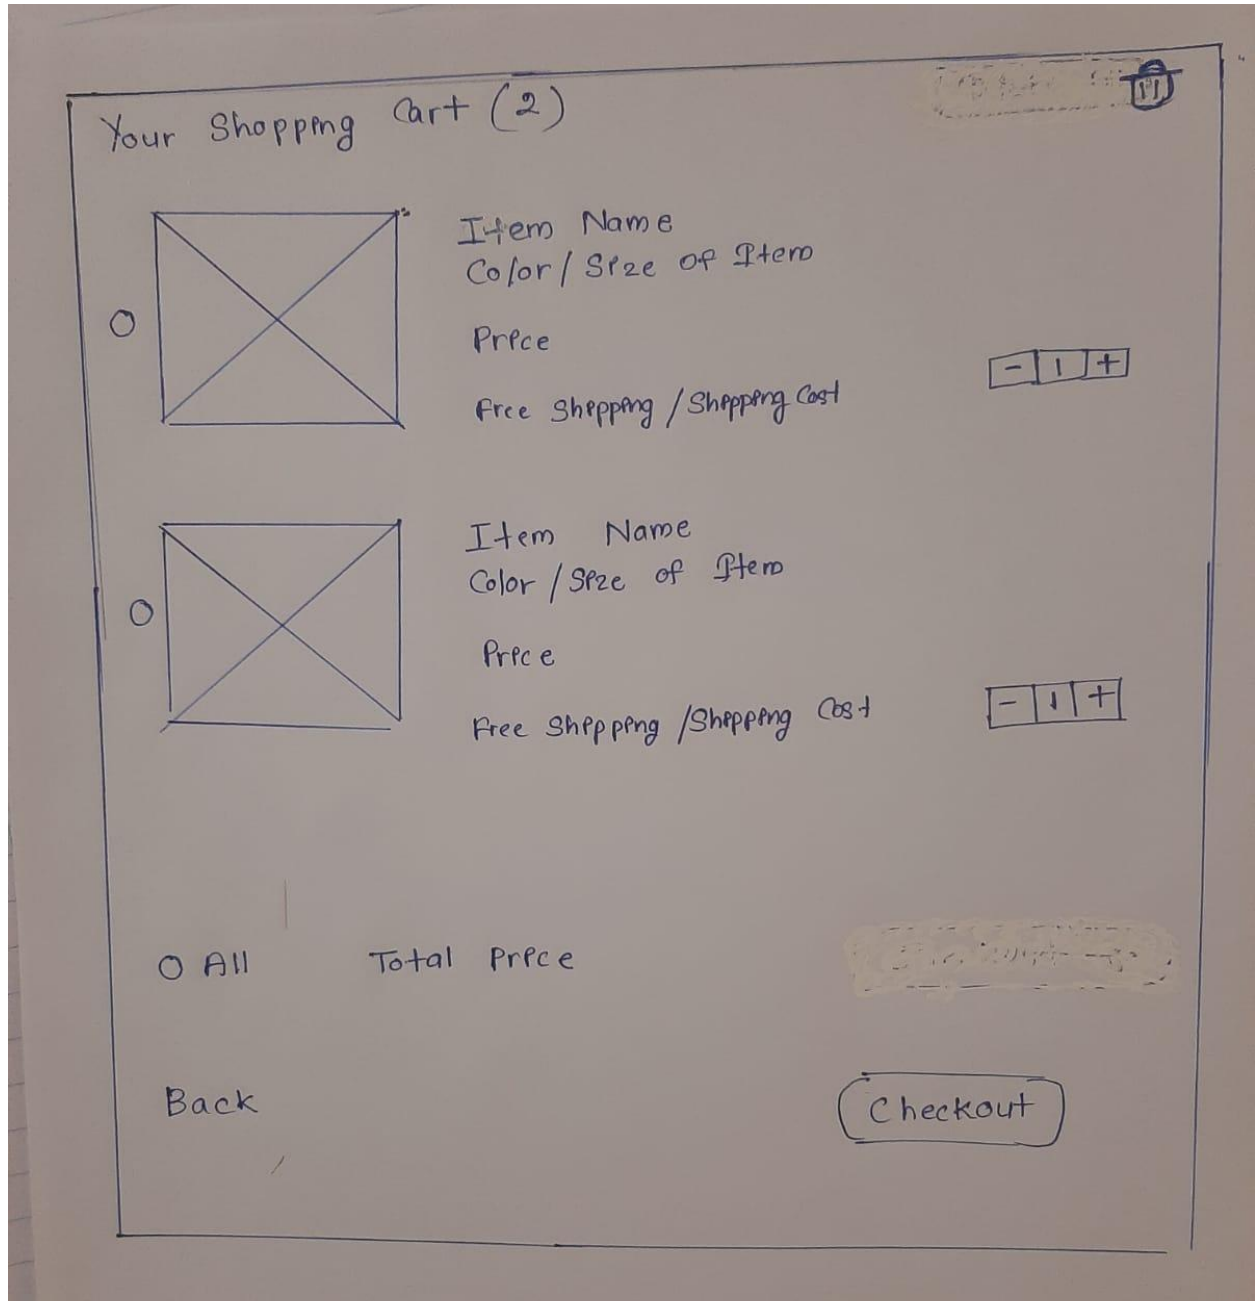 Your Shopping Cart (2)
Item Name
Color / Size of Item
Price
Free Shipping / Shipping Cost
- 1 +
Item Name
Color / Size of Item
Price
Free Shipping / Shipping Cost
- 1 +
All Total Price
Back Checkout